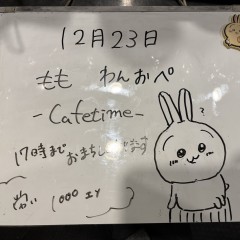 12月23日
もも わんおぺ
-Cafetime-
17時まで おまちしてます
1000
?